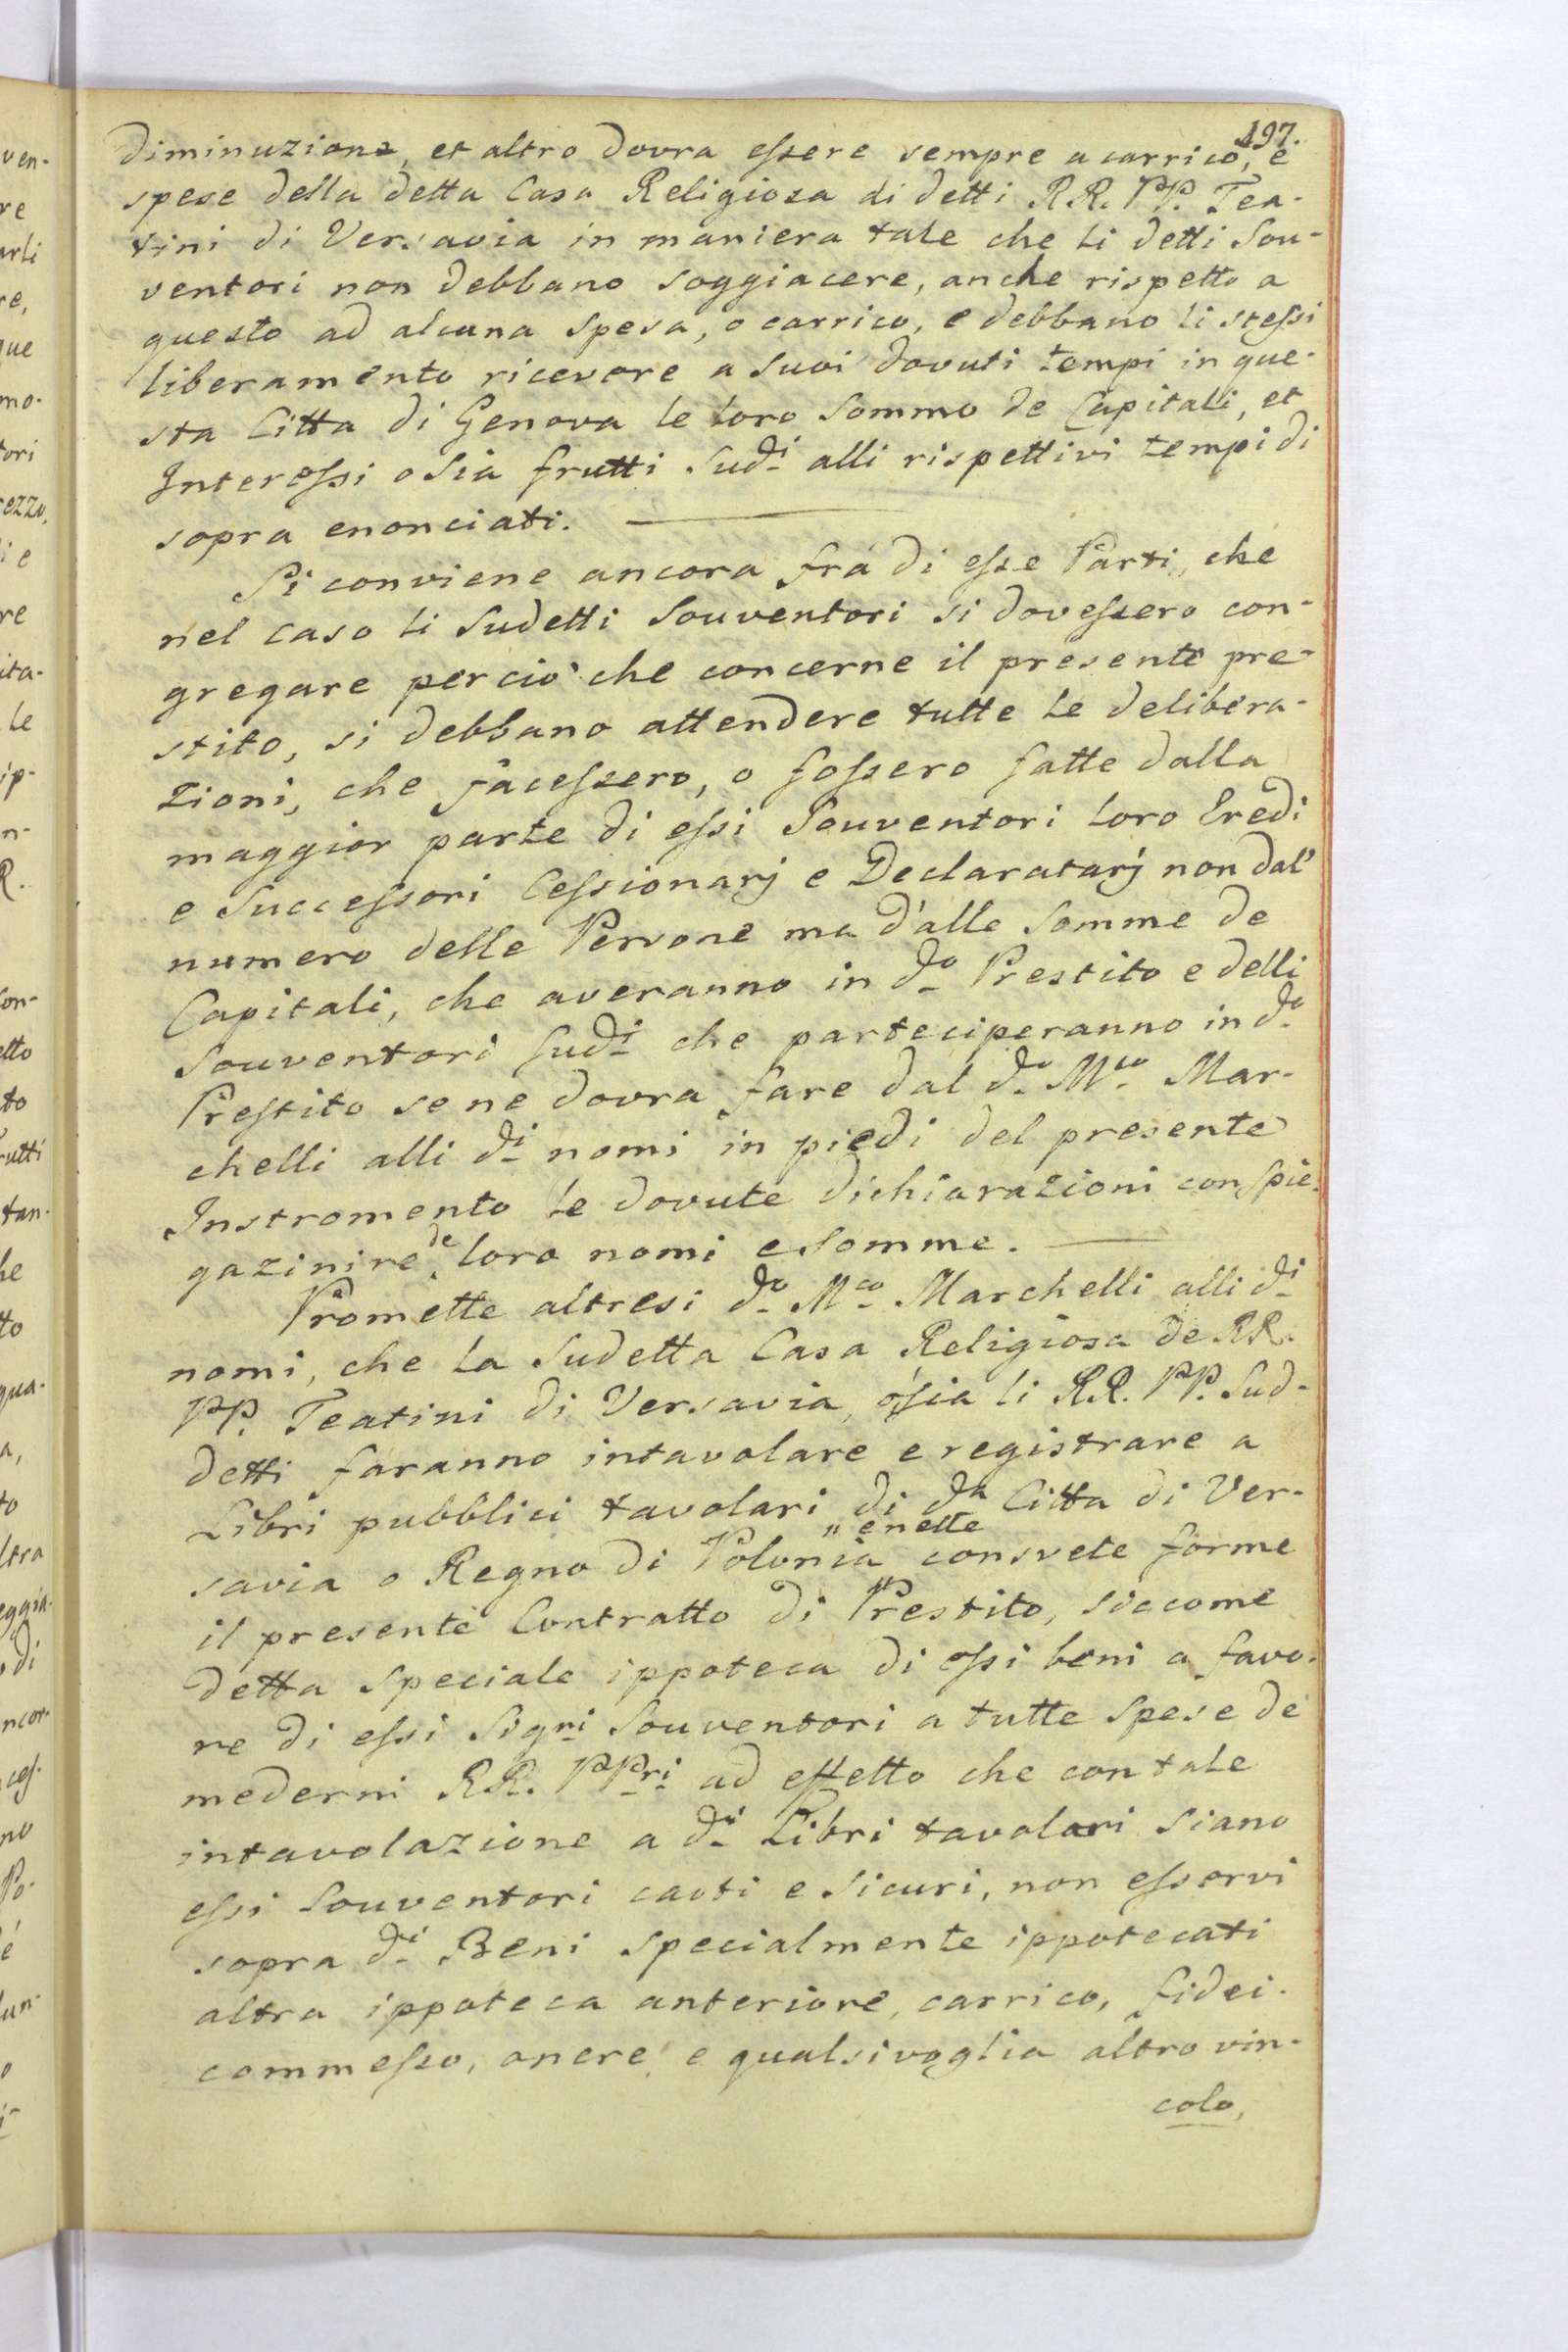 197.
diminuzione, et altro dovra essere sempre a carrico, e
spese della detta Casa Religiosa di detti R.R. PP. Tea-
tini di Versavia in maniera tale che li detti Sou-
ventori non debbano soggiacere, anche rispetto a
questo ad alcuna spesa, o carrico, e debbano li stessi
liberamento ricevere a suoi dovuti tempi in que-
sta Citta di Genova le loro Somme de Capitali, et
Interessi o sia frutti Sud.i alli rispettivi tempi di
sopra enonciati.
Si conviene ancora frà di esse Parti, che
nel caso li Sudetti Souventori si dovessero con-
gregare perciò che concerne il presente pre-
stito, si debbano attendere tutte le delibera-
zioni, che facessero, o fossero fatte dalla
maggior parte di essi Souventori loro Eredi
e Successori Cessionarj e Declaratarj non dal'
numero delle Persone ma d'alle Somme de
Capitali, che averanno in d.o Prestito e delli
Souventori sud.i che parteciperanno in d.o
Prestito se ne dovra fare dal d.o M.co Mar-
chelli alli d.i nomi in piedi del presente
Instromento le dovute dichiarazioni con spie-
gazinire de loro nomi e Somme.
Promette altresi d.o M.co Marchelli alli d.i
nomi, che la Sudetta Casa Religiosa de RR.
PP. Teatini di Versavia, ósia li R.R. PP. Sud-
detti faranno intavolare e registrare a
Libri pubblici tavolari di d.a Citta di Ver-
savia o Regno di Polonia " enelle consvete forme
il presente Contratto di Prestito, siccome
detta speciale ippoteca di essi beni a favo-
re di essi Sig.ri Souventori a tutte spese de
medermi RR. PP.ri ad effetto che con tale
intavolazione a d.i Libri tavolari siano
essi Souventori cauti e sicuri, non esservi
sopra d.i Beni specialmente ippotecati
altra ippoteca anteriore, carrico, fidei-
commesso, onere e qualsivoglia altro vin-
colo,
ven-
re
arli
re,
que
mo-
tori
rezzo,
i e
re
ita-
le
ip-
n-
R.
Con-
etto
to
rutti
tan-
he
to
qua-
a,
to
ltra
eggia-
di
ncor-
ces-
no
Po-
é
lun-
o